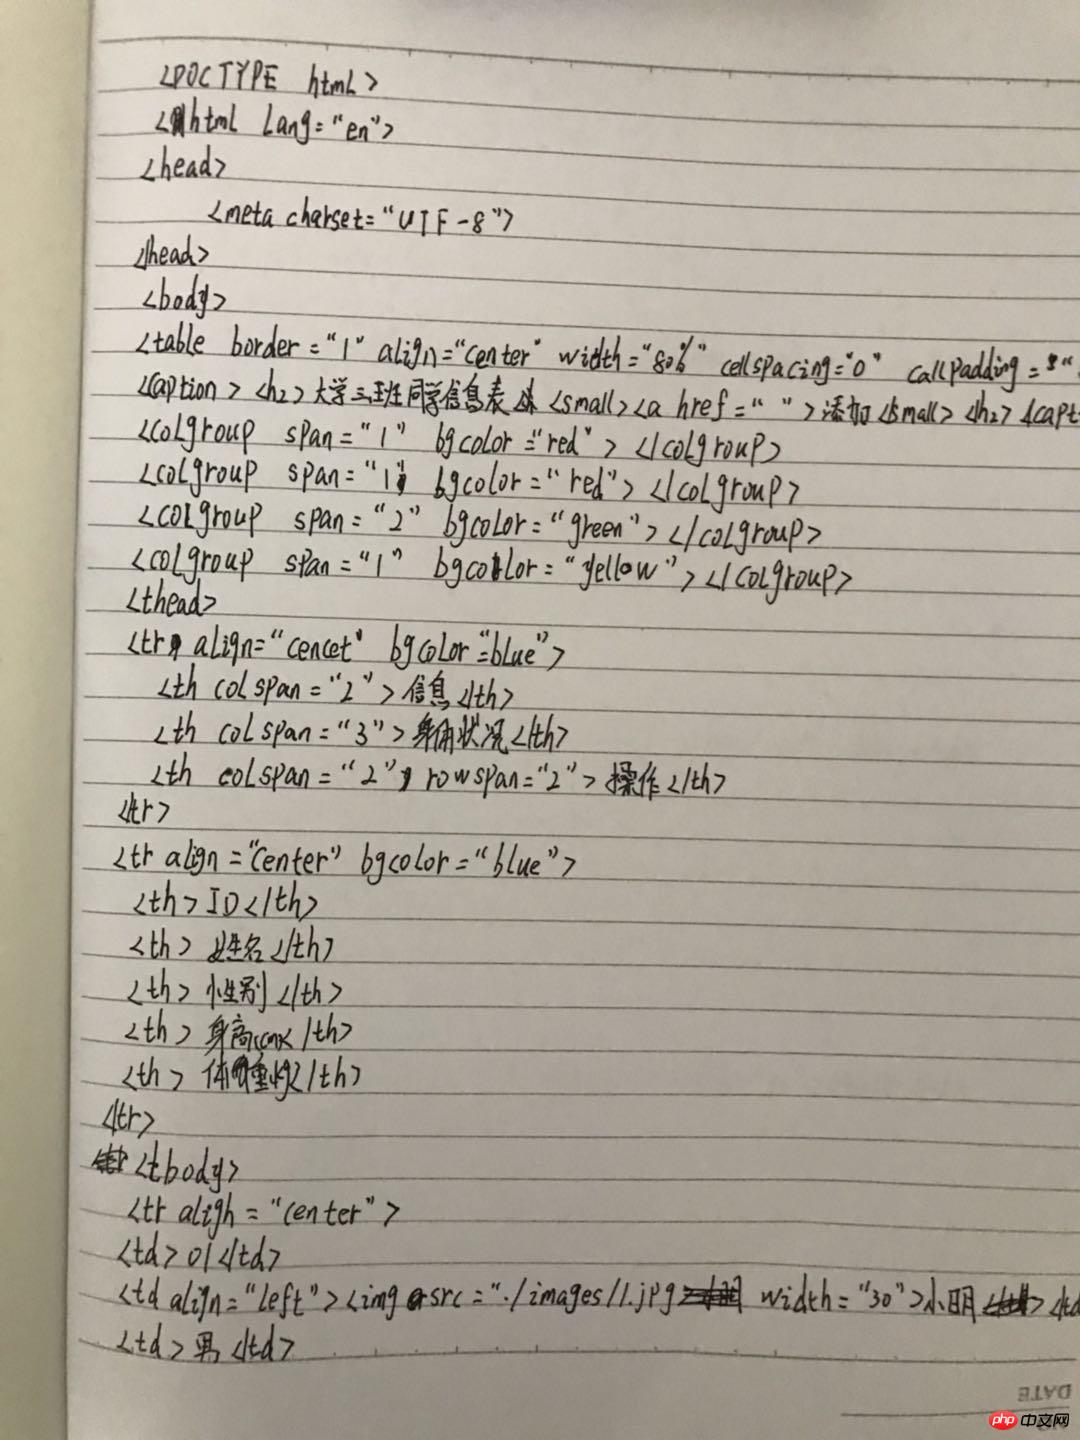 <DOCTYPE html>
<html lang="en">
<head>
<meta charset="UTF-8">
</head>
<body>
<table border="1" align="center" width="80%" cellspacing="0" callpadding="
<caption><h2>大学三班同学信息表 <small><a href=" ">添加</small></h2></capt
<colgroup span="1" bgcolor="red"></colgroup>
<colgroup span="1" bgcolor="red"></colgroup>
<colgroup span="2" bgcolor="green"></colgroup>
<colgroup span="1" bgcolor="yellow"></colgroup>
<thead>
<tr align="cencet" bgcolor="blue">
<th colspan="2">信息</th>
<th colspan="3">身体状况</th>
<th colspan="2" rowspan="2">操作</th>
</tr>
<tr align="center" bgcolor="blue">
<th>ID</th>
<th>姓名</th>
<th>性别</th>
<th>身高(cm)</th>
<th>体重</th>
</tr>
<tbody>
<tr aligh="center">
<td>01</td>
<td align="left"><img src="./images/1.jpg width="30">小明</td
<td>男</td>
DATE
php 中文网